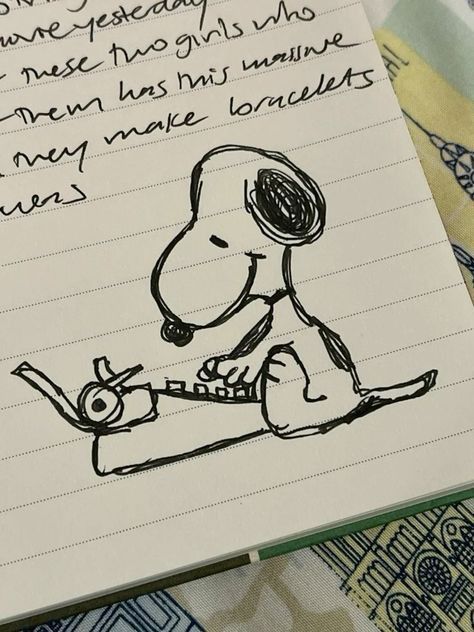 yesterday
these two girls who
them has this massive
they make bracelets